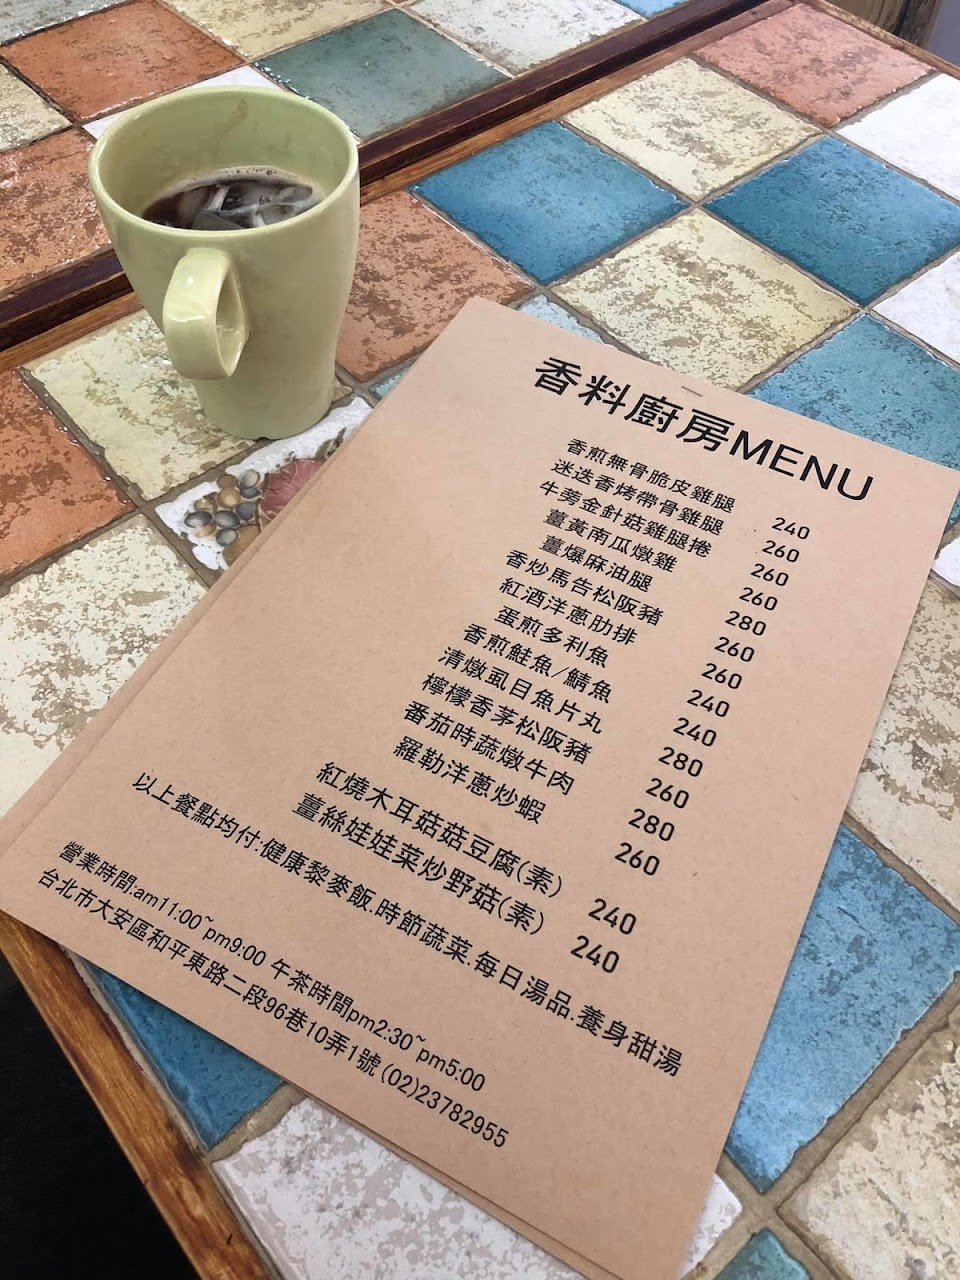 香料廚房MENU
香煎無骨脆皮雞腿 240
迷迭香烤帶骨雞腿 260
牛蒡金針菇雞腿捲 260
薑黃南瓜燉雞 260
薑爆麻油腿 280
香炒馬告松阪豬 260
紅酒洋蔥肋排 260
蛋煎多利魚 240
香煎鮭魚/鯖魚 240
清燉虱目魚片丸 280
檸檬香茅松阪豬 260
番茄時蔬燉牛肉 280
羅勒洋蔥炒蝦 260
紅燒木耳菇菇豆腐(素) 240
薑絲娃娃菜炒野菇(素) 240
以上餐點均付:健康藜麥飯.時節蔬菜.每日湯品.養身甜湯
營業時間:am11:00~pm9:00 午茶時間pm2:30~pm5:00
台北市大安區和平東路二段96巷10弄1號 (02)23782955